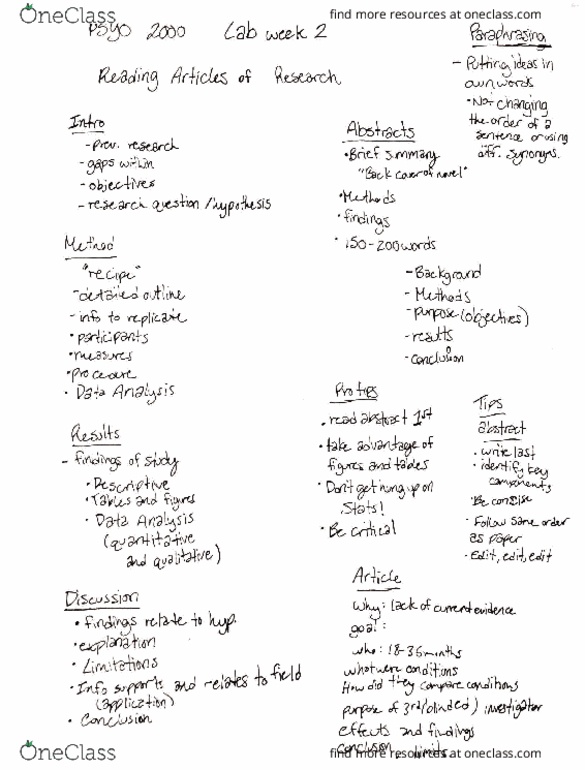 OneClass
find more resources at oneclass.com
PSYO 2000 Lab week 2
Reading Articles of Research
Paraphrasing
- Putting ideas in
own words
• Not changing
the order of a
sentence or using
diff. synonyms.
Intro
- prev. research
- gaps within
- objectives
- research question / hypothesis
Method
"recipe"
- detailed outline
- info to replicate
• participants
• measures
• procedure
• Data Analysis
Results
- findings of study
• Descriptive
• Tables and figures
• Data Analysis
(quantitative
and qualitative)
Discussion
• findings relate to hyp.
• explanation
• Limitations
• Info supports and relates to field
(application)
• Conclusion
Abstracts
• Brief summary
"Back cover of novel"
• Methods
• findings
• 150-200 words
- Background
- Methods
- purpose (objectives)
- results
- conclusion
Pro tips
• read abstract 1st
• take advantage of
figures and tables
• Don't get hung up on
Stats!
• Be critical
Tips
abstract
• write last
• identify key
components
• Be concise
• Follow same order
as paper
• Edit, edit, edit
Article
why: lack of current evidence
goal:
who: 18-36 months
what were conditions
How did they compare conditions
purpose of 3rd (blinded) investigator
effects and findings
conclusion limits
OneClass
find more resources at oneclass.com